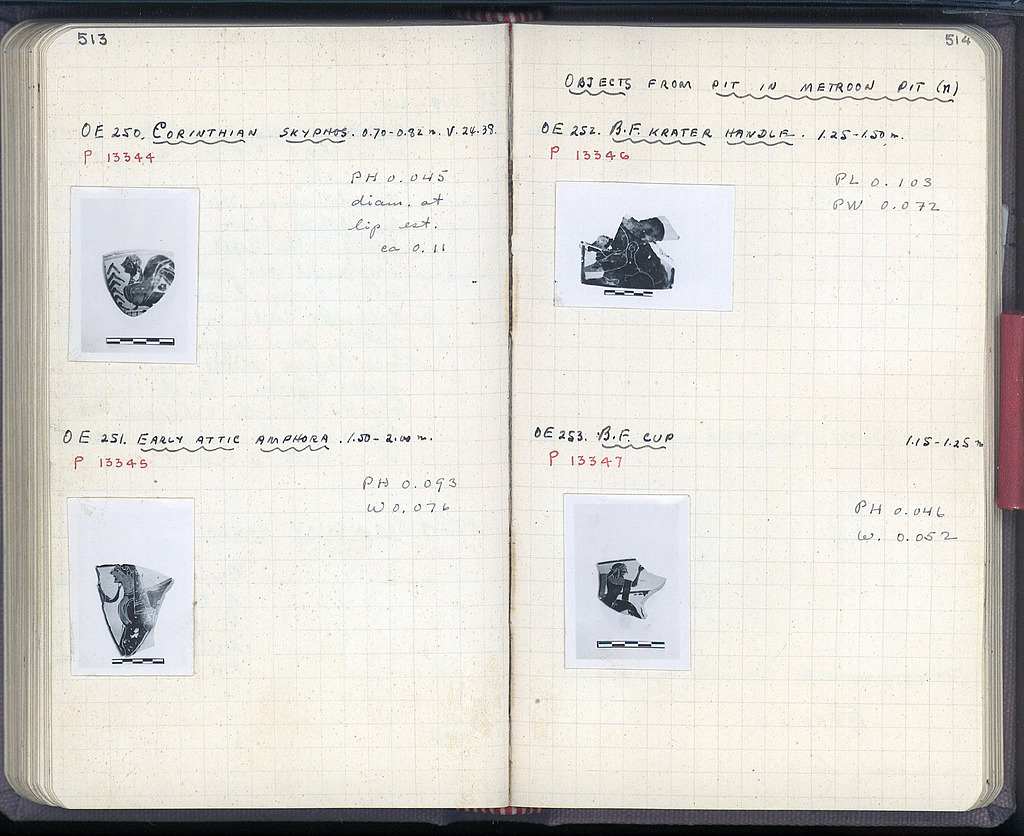 513
OE 250. CORINTHIAN SKYPHOS. 0.70-0.82 m. V. 24.38.
P 13344
PH 0.045
diam. at
lip est.
ca 0.11
OE 251. EARLY ATTIC AMPHORA. 1.50-2.00 m.
P 13345
PH 0.093
W 0.076
514
OBJECTS FROM PIT IN METROON PIT (n)
OE 252. B.F. KRATER HANDLE. 1.25-1.50 m.
P 13346
PL 0.103
PW 0.072
OE 253. B.F. CUP 1.15-1.25 m
P 13347
PH 0.046
W. 0.052